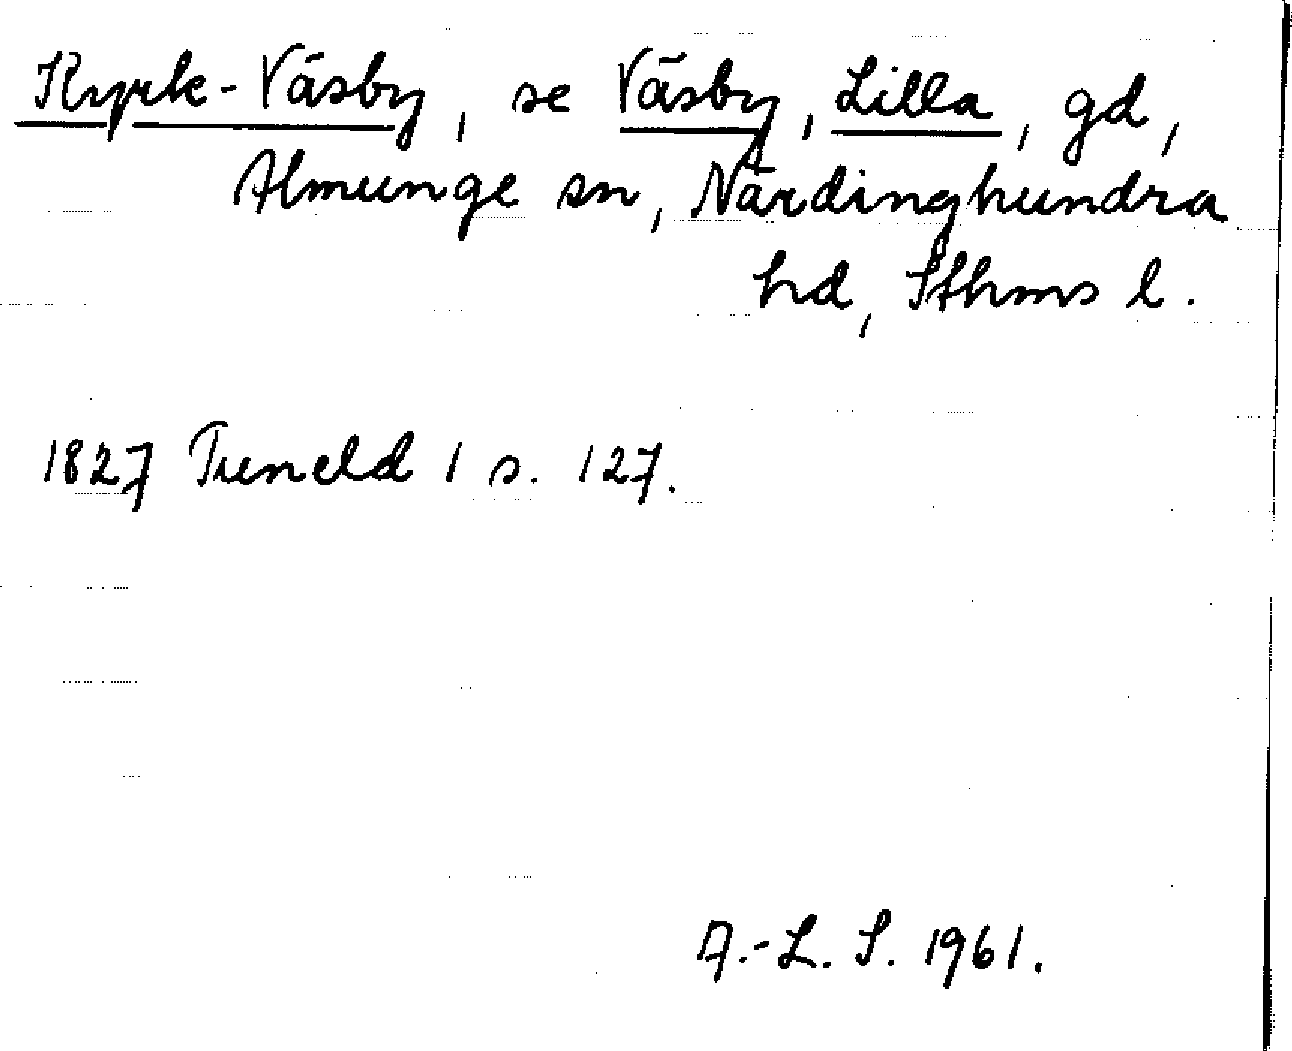 Kyrk-Väsby, se Väsby, Lilla, gd,
Almunge sn, Närdinghundra
hd, Sthms l.
1827 Tuneld 1 s. 127.
A.-L. S. 1961.